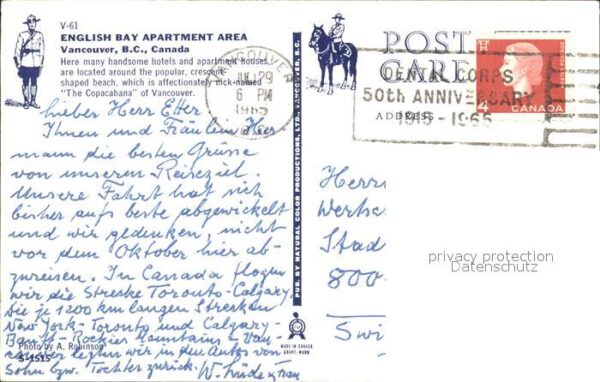 V-61
ENGLISH BAY APARTMENT AREA
Vancouver, B.C., Canada
Here many handsome hotels and apartment houses,
are located around the popular, crescent
shaped beach, which is affectionately nick-named
"The Copacabana" of Vancouver.
Lieber Herr Etter.
Ihnen und Fräulein Her
mann die besten Grüsse
von unserem Reiseziel.
Unsere Fahrt hat sich
bisher aufs beste abgewickelt
und wir gedenken, nicht
vor dem Oktober hier ab-
zureisen. In Canada flogen
wir die Strecke Toronto-Calgary.
Die je 1200 km langen Strecken
New York-Toronto und Calgary-
Banff-Rockier Mountains-Van-
couver legten wir in den Autos von
Sohn bzw. Tochter zurück. W.
Photo by A. Robinson
S-1515
PUB. BY NATURAL COLOR PRODUCTIONS, LTD., VANCOUVER, B.C.
MADE IN CANADA
VANCOUVER
29
6 PM
1965
POST
CARD
ADDRESS
DENTAL CORPS
50th ANNIVERSARY
1915-1965
4
CANADA
POSTES POSTAGE
Herrn
Stad
800
Swi
privacy protection
Datenschutz